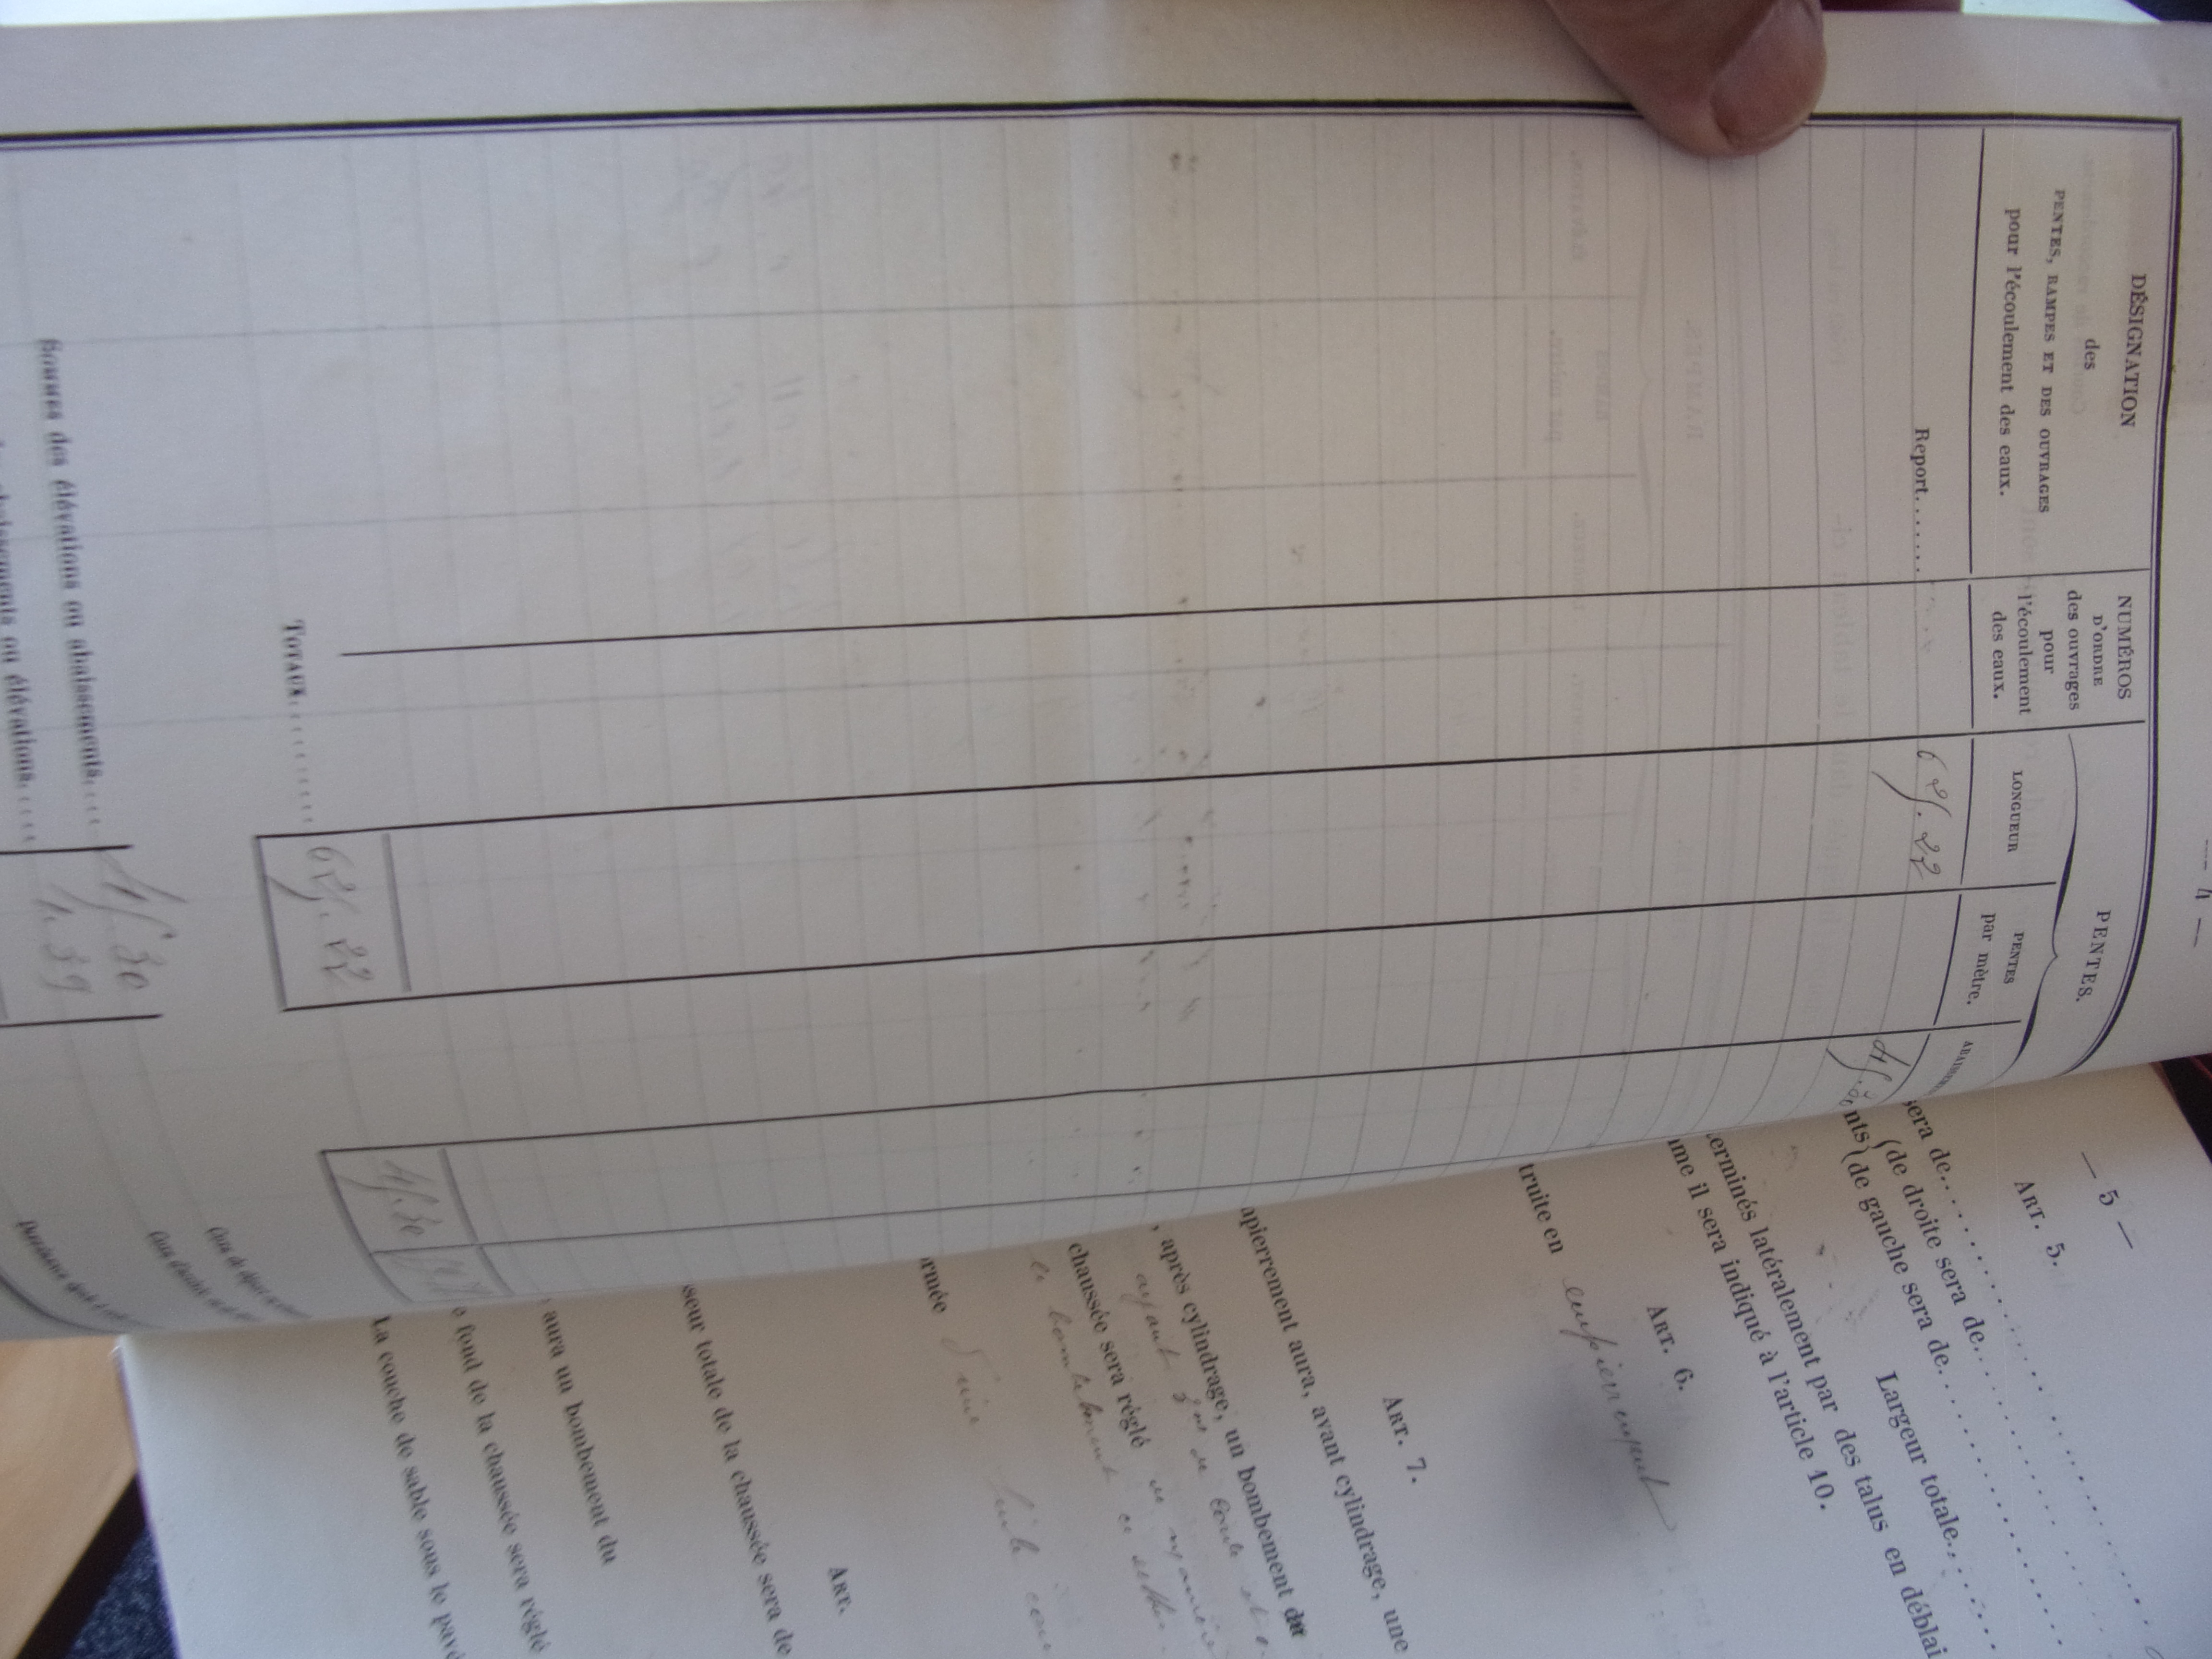 — 4 —
DÉSIGNATION
des
PENTES, RAMPES ET DES OUVRAGES
pour l'écoulement des eaux.
NUMÉROS
D'ORDRE
des ouvrages
pour
l'écoulement
des eaux.
PENTES.
LONGUEUR
PENTES
par mètre.
Report.......
625.22
45.30
TOTAUX............
625.22
45.30
45.30
SOMMES des élévations ou abaissements....
1.39
abaissements ou élévations....
— 5 —
ART. 5.
sera de
de droite sera de
de gauche sera de
Largeur totale
terminés latéralement par des talus en déblai
il sera indiqué à l'article 10.
ART. 6.
truite en empierrement
ART. 7.
apierrement aura, avant cylindrage, une
, après cylindrage, un bombement du
ayant de corde et
chaussée sera réglé de manière
le bombement
ormée d'une seule
ART.
sseur totale de la chaussée sera de
aura un bombement du
fond de la chaussée sera réglé
La couche de sable sous le pavé